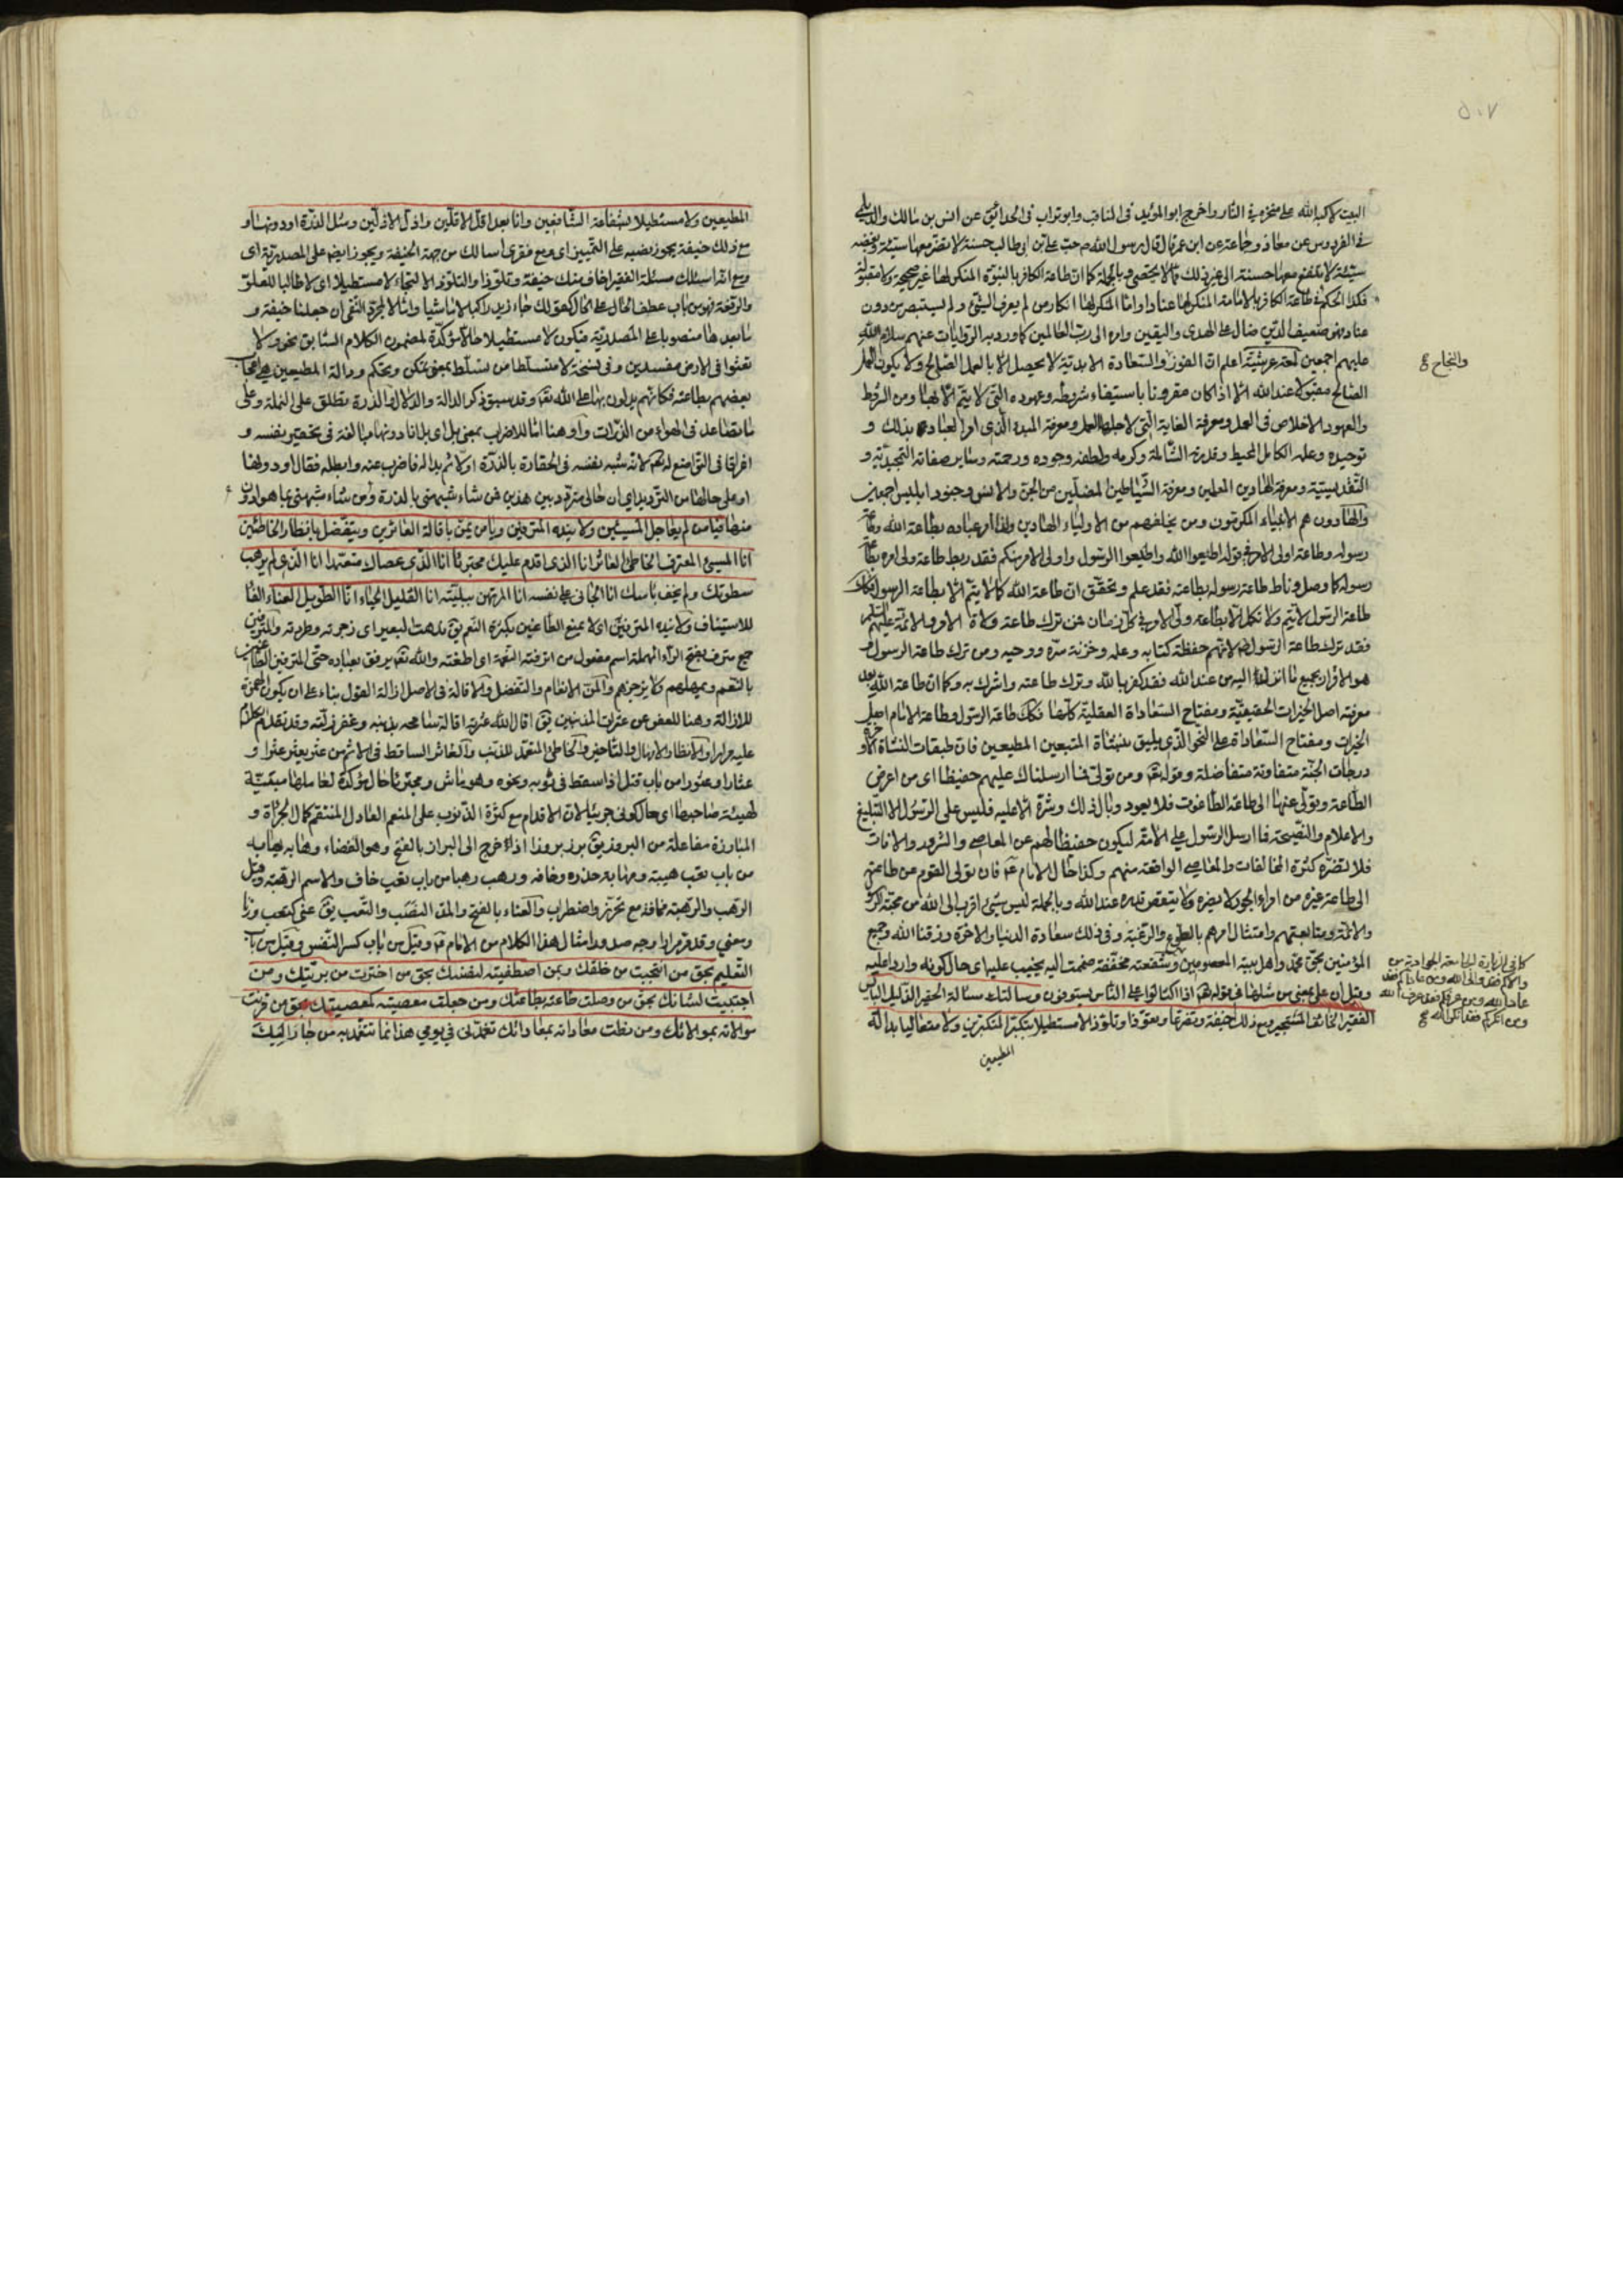 ٥٠٧
البيت لاكبه الله على منخره في النار واخرج ابو المؤيد في المناقب وابو تراب في الحدائق عن انس بن مالك والديلمي
في الفردوس عن معاذ وجماعة عن ابن عمر قال قال رسول الله ص حب علي بن ابي طالب حسنة لا تضر معها سيئة وبغضه
سيئة لا ينفع معها حسنة الى غير ذلك مما لا يحصى وبالجملة كما ان طاعة الكافر بالنبوة المنكر لها غير صحيحة ولا مقبولة
فكذا الحكم في طاعة الكافر بالامامة المنكر لها عنادا واما المنكر لها انكار من لم يعرف الشيء ولم يستبصر من دون
عناد فهو ضعيف الدين ضال على الهدى واليقين وامره الى رب العالمين كما ورد به الروايات عنهم سلام الله
عليهم اجمعين لمعة عرشية اعلم ان الفوز والسعادة الابدية لا يحصل الا بالعمل الصالح ولا يكون العمل
والنجاح
الصالح مقبولا عند الله الا اذا كان مقرونا باستيفاء شروطه وعهوده التي لا يتم الا بها ومن الشروط
والعهود الاخلاص في العمل ومعرفة الغاية التي لاجلها العمل ومعرفة المبدء الذي امر العباد بذلك و
توحيده وعلمه الكامل المحيط وقدرته الشاملة وكرمه ولطفه وجوده ورحمته وساير صفاته التمجيدية و
التقديسية ومعرفة الهادين المعلمين ومعرفة الشياطين المضلين من الجن والانس وجنود ابليس اجمعين
والهادون هم الانبياء المكرمون ومن يخلفهم من الاولياء الهادين ولهذا امر عباده بطاعة الله وطاعة
رسوله وطاعة اولي الامر في قوله اطيعوا الله واطيعوا الرسول واولي الامر منكم فقد ربط طاعة ولي امره بطاعة
رسوله كما وصل وناط طاعة رسوله بطاعته فقد علم وتحقق ان طاعة الله كما لا يتم الا بطاعة الرسول فكذلك
طاعة الرسول لا تتم ولا تكمل الا بطاعة ولي الامر في كل زمان فمن ترك طاعة ولاة الامر والائمة عليهم السلام
فقد ترك طاعة الرسول لانهم حفظة كتابه وعلمه وخزنة سره ووحيه ومن ترك طاعة الرسول و
هو الاقرار بجميع ما انزل اليه من عند الله فقد كفر بالله وترك طاعته واشرك به وكما ان طاعة الله بعد
معرفته اصل الخيرات الحقيقية ومفتاح السعادات العقلية كلها فكذلك طاعة الرسول فطاعة الامام اصل
الخيرات ومفتاح السعادات على النحو الذي يليق بنشأة المتبعين المطيعين فان طبقات النشأة الاخرة و
درجات الجنة متفاوتة متفاضلة وقوله تعالى ومن تولى فما ارسلناك عليهم حفيظا اي من اعرض
الطاعة وتولى عنها الى طاعة الطاغوت فلا يعود وبال ذلك وشره الا عليه فليس على الرسول الا التبليغ
والاعلام والنصيحة فما ارسل الرسول على الامة ليكون حفيظا لهم عن المعاصي والشرور والافات
فلا تضره كثرة المخالفات والمعاصي الواقعة منهم وكذا حال الامام ع فان تولى القوم عن طاعته
الى طاعة غيره من امراء الجور لا يضره ولا ينقص قدره عند الله وبالجملة ليس شيء اقرب الى الله من محبة الرسول
والائمة ومتابعتهم وامتثال امرهم بالطوع والرغبة وفي ذلك سعادة الدنيا والاخرة ورزقنا الله وجميع
المؤمنين بحق محمد واهل بيته المعصومين
كما في الزيارة الجامعة الجوادية من
والاكم فقد والى الله ومن عاداكم فقد
عادا الله ومن عرفكم فقد عرف الله
ومن انكركم فقد انكر الله
وقيل ان على بمعنى من مثلها في قوله تعالى اذا اكتالوا على الناس يستوفون وسالتك مسالة الحقير الذليل البائس
الفقير الخائف المستجير ومع ذلك خيفة وتضرعا وتعوذا وتلوذا لا مستطيلا بتكبر المتكبرين ولا متعاليا بدالة
المطيعين
المطيعين ولا مستطيلا بشفاعة الشافعين وانا بعد اقل الاقلين واذل الاذلين ومثل الذرة او دونها و
مع ذلك خيفة يجوز نصبه على التمييز اي ومع فقري اسالك من جهة الخيفة ويجوز ايضا على المصدرية اي
ومع انه اسئلك مسئلة الفقير اخاف منك خيفة وتلوذا والتلوذ الالتجاء لا مستطيلا اي لا طالبا للعلو
والرفعة فهو من باب عطف الحال على الحال كقولك جاء زيد راكبا لا ماشيا
ما بعدها منصوبا على المصدرية فيكون لا مستطيلا حالا مؤكدة لمضمون الكلام السابق نحو ولا
تعثوا في الارض مفسدين وفي نسخة لا متسلطا من تسلط بمعنى تمكن وتحكم ودالة المطيعين
بعضهم بطاعته فكانهم يدلون بها على الله تعالى وقد سبق ذكر الدالة والدلال والذرة يطلق على النملة وعلى
ما يتصاعد في الهواء من الذرات واو هنا اما للاضراب بمعنى بل اي بل انا دونها مبالغة في تحقير نفسه و
او على حالها من الترديد اي ان حالي متردد بين هذين فمن شاء شبهني بالذرة ومن شاء شبهني بما هو ادون
منها فيا من لم يعاجل المسيئين ولا ينده المترفين ويا من يمن باقالة العاثرين ويتفضل بانظار الخاطئين
انا المسيئ المعترف الخاطئ العاثر انا الذي اقدم عليك مجترئا انا الذي عصاك متعمدا انا الذي لم يرهب
سطوتك ولم يخف باسك انا الجاني على نفسه انا المرتهن ببليته انا القليل الحياء انا الطويل العناء الفاء
للاستيناف ولا ينده المترفين اي لا يمنع الطاغين بكثرة النعم يق ندهت البعير اي زجرته وطردته والمترفين
جمع مترف بفتح الراء المهملة اسم مفعول من اترفته النعمة اي اطغته والله تعالى يرفق بعباده حتى المترفين
بالنعم ويمهلهم ولا يزجرهم والمن الانعام والتفضل والاقالة في الاصل ازالة القول بناء على ان يكون الهمزة
للازالة وهنا للعفو عن عثرات المذنبين يق اقال الله عثرته اقالة سامحه بذنبه وغفر زلته وقد تقدم
عليه مرارا والانظار الامهال والتاخير والخاطئ المتعمد للذنب والعاثر الساقط في الاثم من عثر يعثر عثرا و
عثارا وعثورا من باب قتل اذا سقط في ثوبه ونحوه وهو عاثر ومجترئا حال مؤكدة لعاملها مبينة
لهيئة صاحبها اي حالكوني جريئا لان الاقدام مع كثرة الذنوب على المنعم العادل المنتقم كمال الجرأة و
المبارزة مفاعلة من البروز يق برز بروزا اذا خرج الى البراز بالفتح وهو الفضاء وهابه يهابه
من باب تعب هيبة ومهابة حذره وخافه ورهب رهبا من باب تعب خاف والاسم الرهبة وقيل
الرهب والرهبة مخافة مع تحرز واضطراب والعناء بالفتح والمد النصب والتعب يق عني كتعب وزنا
ومعنى وقد مر مرارا وجه صدور امثال هذا الكلام من الامام ع وقيل من باب كسر النفس وقيل من باب
التعليم بحق من انتجبت من خلقك وبمن اصطفيته لنفسك بحق من اخترت من بريتك ومن
اجتبيت لشانك بحق من وصلت طاعته بطاعتك ومن جعلت معصيته كمعصيتك بحق من قرنت
موالاته بموالاتك ومن نطت معاداته بمعاداتك تغمدني في يومي هذا بما تتغمد به من جار اليك